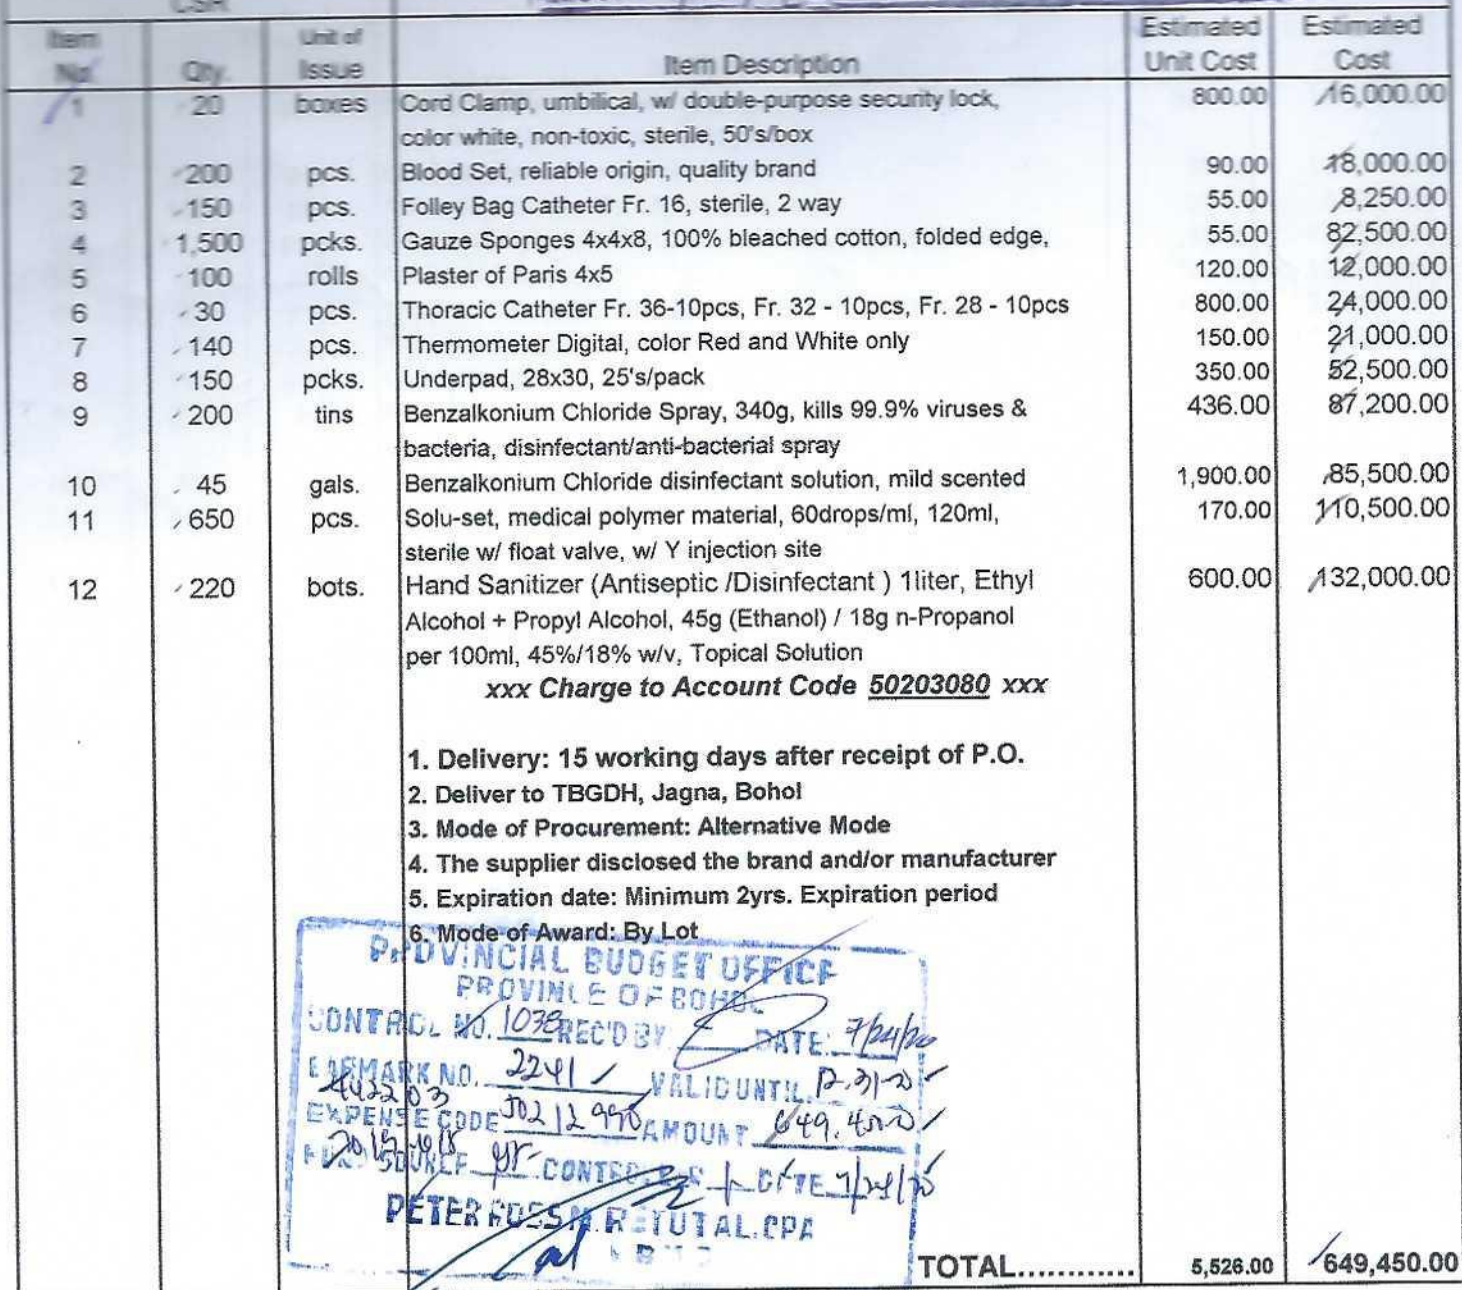 CSR
Item No. Qty. Unit of Issue Item Description Estimated Unit Cost Estimated Cost
1 20 boxes Cord Clamp, umbilical, w/ double-purpose security lock, 800.00 16,000.00
color white, non-toxic, sterile, 50's/box
2 200 pcs. Blood Set, reliable origin, quality brand 90.00 18,000.00
3 150 pcs. Folley Bag Catheter Fr. 16, sterile, 2 way 55.00 8,250.00
4 1,500 pcks. Gauze Sponges 4x4x8, 100% bleached cotton, folded edge, 55.00 82,500.00
5 100 rolls Plaster of Paris 4x5 120.00 12,000.00
6 30 pcs. Thoracic Catheter Fr. 36-10pcs, Fr. 32 - 10pcs, Fr. 28 - 10pcs 800.00 24,000.00
7 140 pcs. Thermometer Digital, color Red and White only 150.00 21,000.00
8 150 pcks. Underpad, 28x30, 25's/pack 350.00 52,500.00
9 200 tins Benzalkonium Chloride Spray, 340g, kills 99.9% viruses & 436.00 87,200.00
bacteria, disinfectant/anti-bacterial spray
10 45 gals. Benzalkonium Chloride disinfectant solution, mild scented 1,900.00 85,500.00
11 650 pcs. Solu-set, medical polymer material, 60drops/ml, 120ml, 170.00 110,500.00
sterile w/ float valve, w/ Y injection site
12 220 bots. Hand Sanitizer (Antiseptic /Disinfectant ) 1liter, Ethyl 600.00 132,000.00
Alcohol + Propyl Alcohol, 45g (Ethanol) / 18g n-Propanol
per 100ml, 45%/18% w/v, Topical Solution
xxx Charge to Account Code 50203080 xxx
1. Delivery: 15 working days after receipt of P.O.
2. Deliver to TBGDH, Jagna, Bohol
3. Mode of Procurement: Alternative Mode
4. The supplier disclosed the brand and/or manufacturer
5. Expiration date: Minimum 2yrs. Expiration period
6. Mode of Award: By Lot
PROVINCIAL BUDGET OFFICE
PROVINCE OF BOHOL
CONTROL NO. 1038 REC'D BY DATE: 7/24/20
EARMARK NO. 2241 VALID UNTIL 12-31-20
EXPENSE CODE 50212990 AMOUNT 649,450
FUND SOURCE DATE 7/24/20
PETER ROSS M. RETUTAL, CPA
TOTAL............. 5,526.00 649,450.00